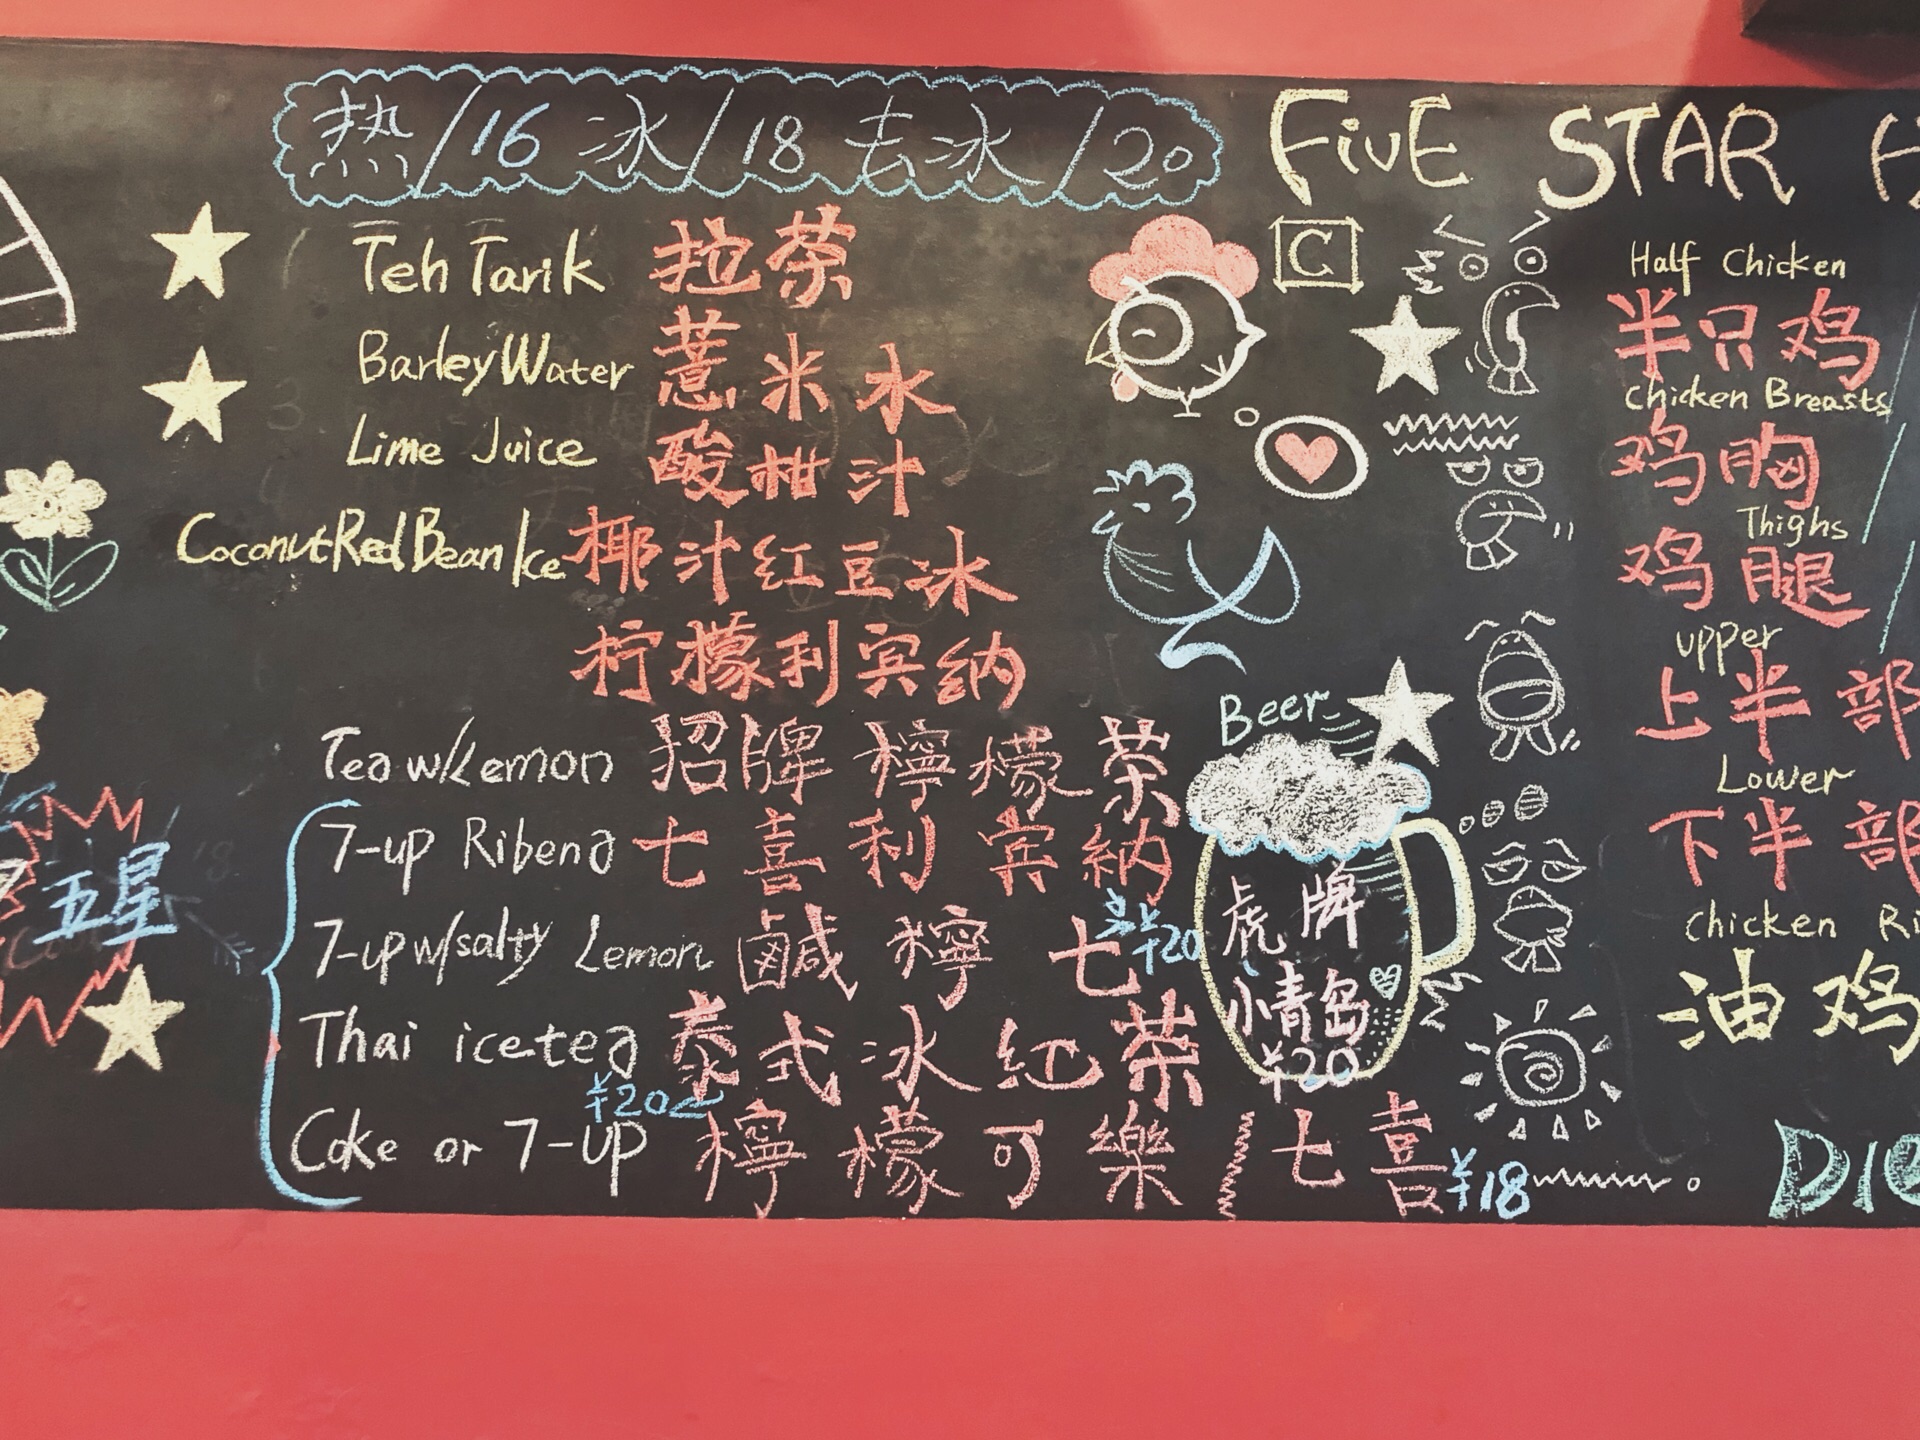 热/16 冰/18 去冰/20
Teh Tarik 拉茶
Barley Water 薏米水
Lime Juice 酸柑汁
Coconut Red Bean Ice 椰汁红豆冰
柠檬利宾纳
Tea w/Lemon 招牌檸檬茶
7-up Ribena 七喜利宾納
7-up w/salty Lemon 鹹檸七 ¥20
Thai icetea 泰式冰红茶
¥20
Coke or 7-up 檸檬可樂/七喜 ¥18
五星
Beer
虎牌
小青岛
¥20
FivE STAR
C
Half Chicken
半只鸡
Chicken Breasts
鸡胸
Thighs
鸡腿
upper
上半部
Lower
下半部
Chicken
油鸡